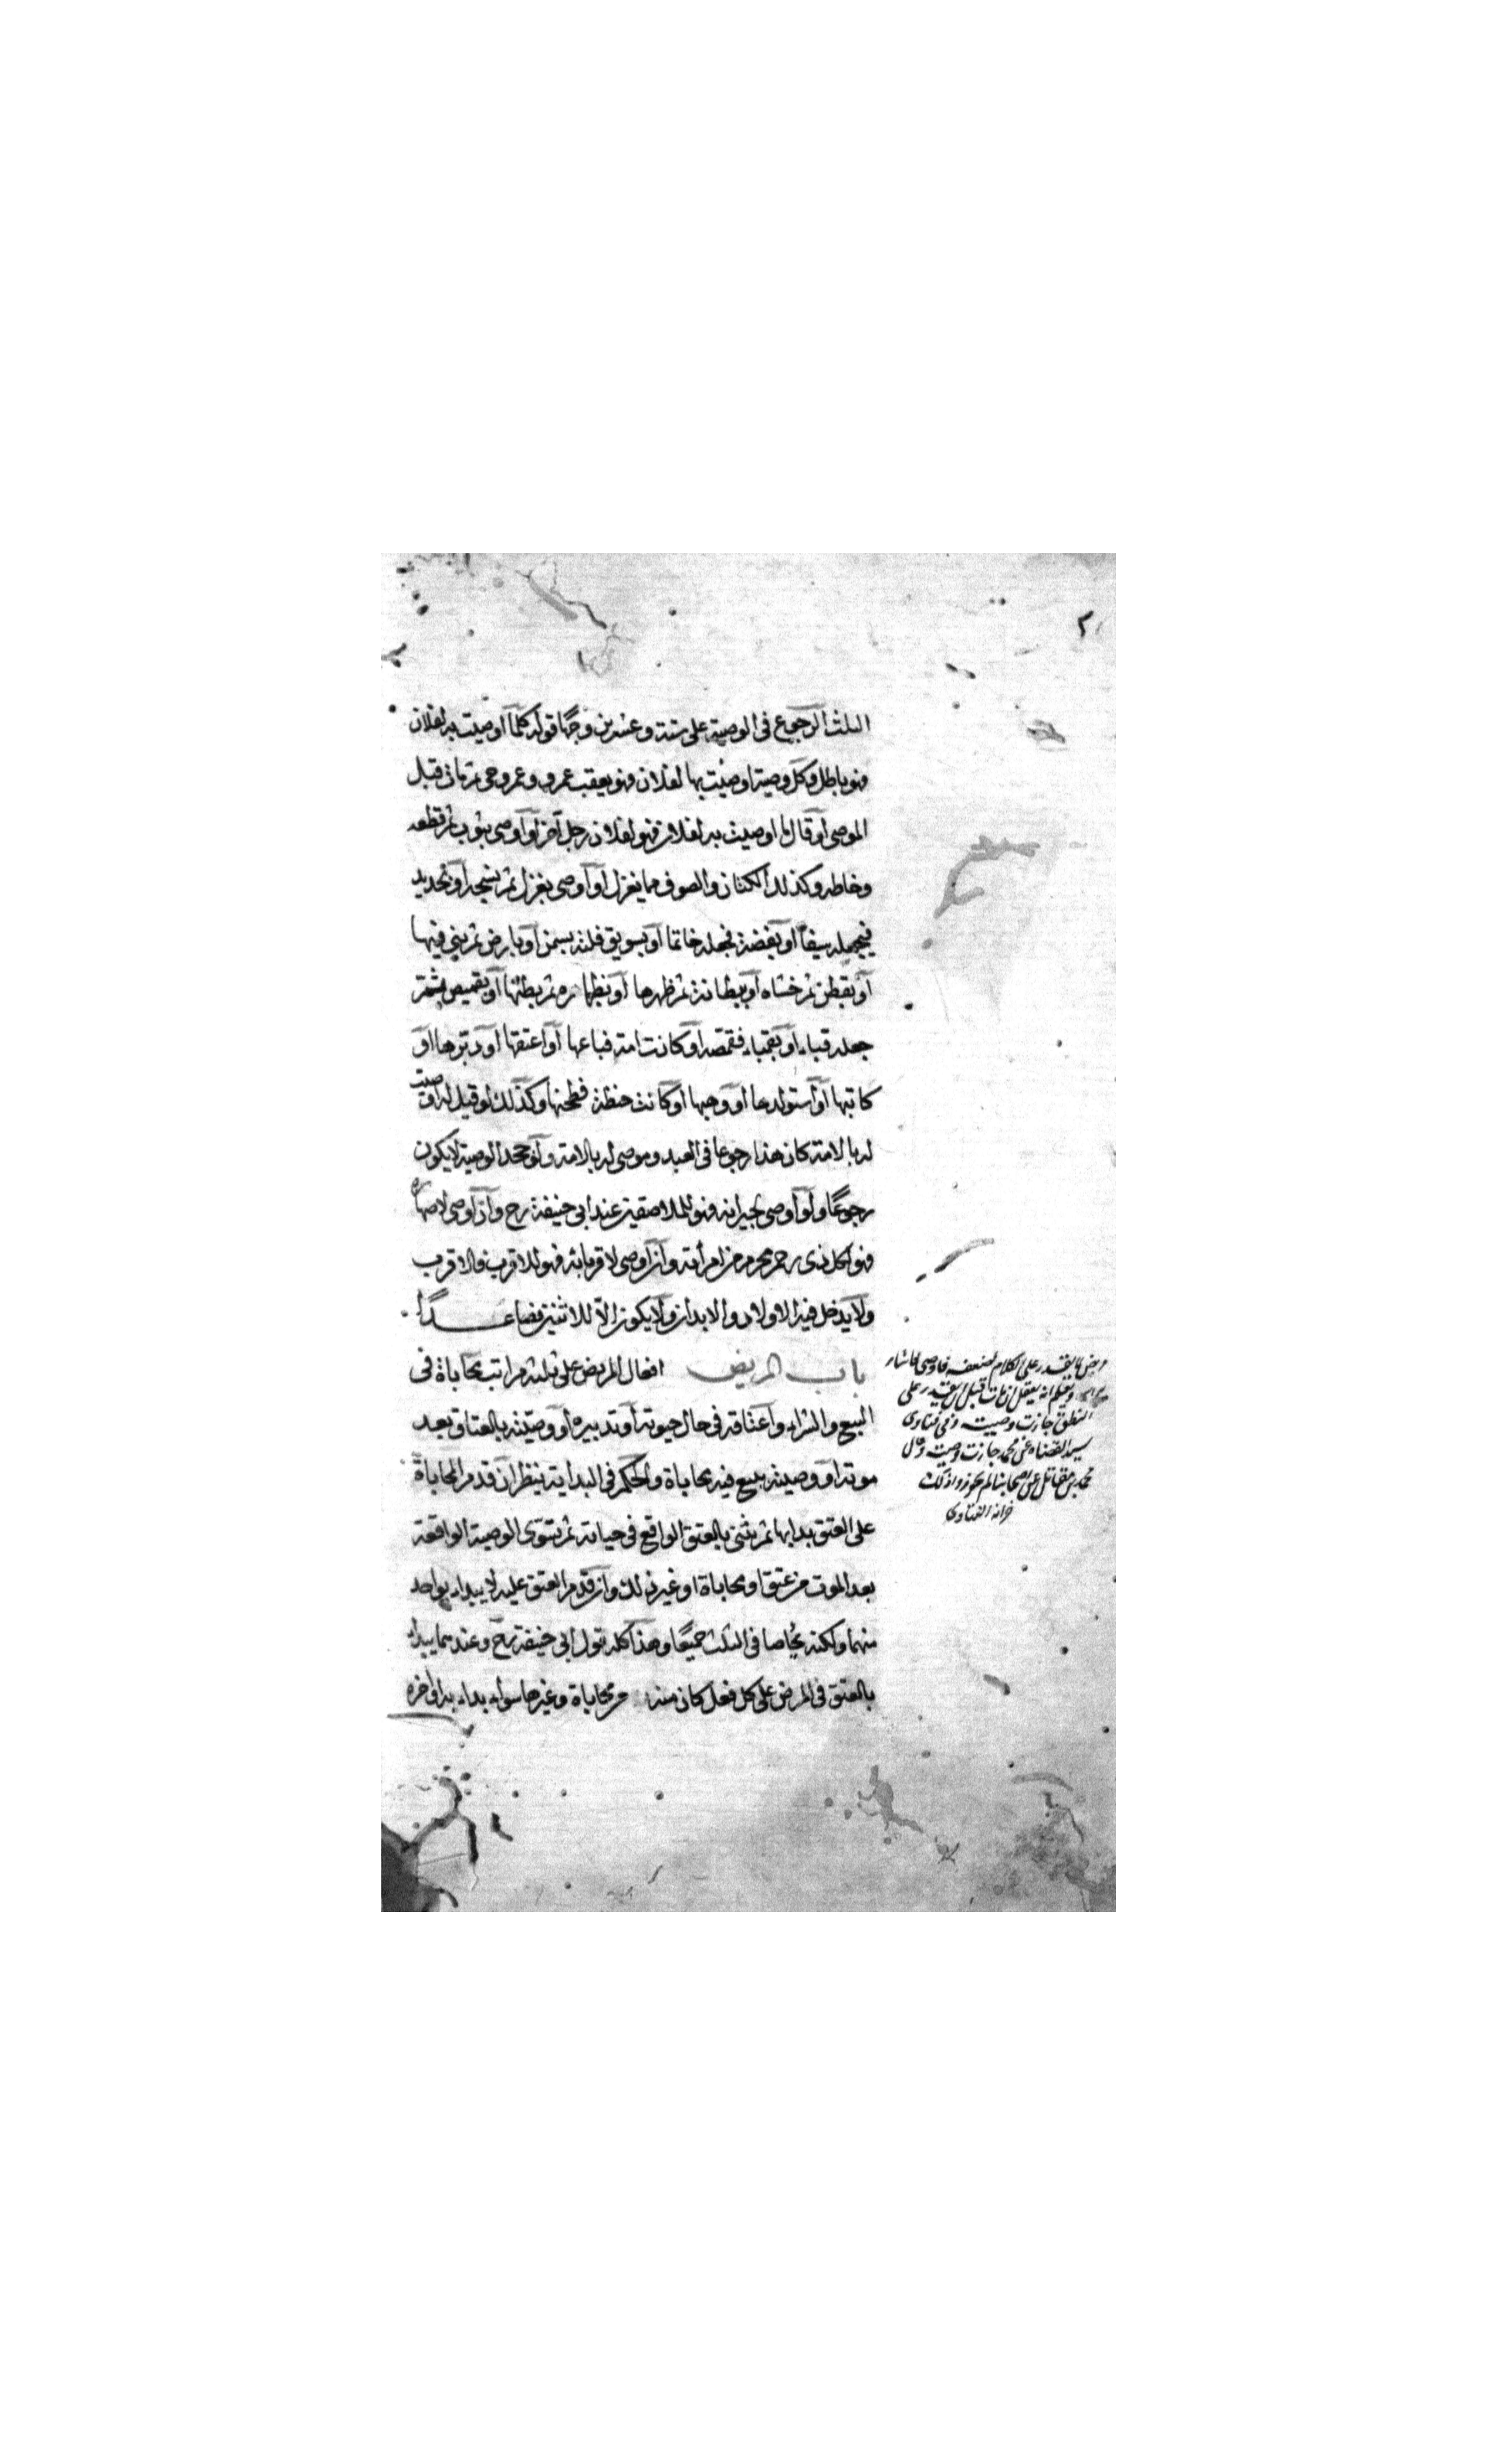 الثلث الرجوع في الوصية على ستة وعشرين وجها قوله كلما اوصيت به لفلان
فهو باطل وكل وصية اوصيت بها لفلان فهو بعقب عمرو وعمرو حي ثم مات قبل
الموصي او قال ما اوصيت به لفلان فهو لفلان رجل آخر او اوصى بثوب ثم قطعه
وخاطه وكذلك الكتان والصوف مما يغزل او اوصى بغزل ثم ينسجه او بحديد
فيجعله سيفا او بفضة فجعله خاتما او بسويق فلته بسمن او بارض ثم بني فيها
او بقطن ثم حشاه او ببطانة ثم ظهرها او بظهاره ثم بطنها او بقميص ثم
جعله قباء او بقباء فقمصه او كانت امة فباعها او اعتقها او دبرها او
كاتبها او استولدها او وهبها او كانت حنطة فطحنها وكذلك لو قيل له اوصيت
له بالامة كان هذا رجوعا في العبد وموصى له بالامة ولو جحد الوصية لا يكون
رجوعا ولو اوصى لجيرانه فهو للملاصقين عند ابي حنيفة رح وان اوصى لاصهاره
فهو لكل ذي رحم محرم من امرأته وان اوصى لاقربائه فهو للاقرب فالاقرب
ولا يدخل فيه الاولاد والابدان ولا يكون الا للاثنين فصاعدا
باب المريض افعال المريض على ثلثة مراتب محاباة في
البيع والشراء واعتاقه في حال حيوته او تدبيره او وصيته بالعتاق بعد
موته او وصيته ببيع فيه محاباة والحكم في البداية ينظر ان قدم المحاباة
على العتق بدا بها ثم يثني بالعتق الواقع في حياته ثم يستوي الوصية الواقعة
بعد الموت من عتق او محاباة او غير ذلك وان قدم العتق عليه لا يبداء بواحد
منهما ولكنه يحاصا في الثلث جميعا وهذا كله قول ابي حنيفة رح وعندهما يبداء
بالعتق في المرض على كل فعل كان منه من محاباة وغيرها سواء بداء به او اخره
مريض لا يقدر على الكلام لضعفه فاوصى فاشار
برأسه ويعلم انه يعقل ان مات قبل ان يقدر على
النطق جازت وصيته وفي فتاوى
سيد القضاة عن محمد جازت وصيته وقال
محمد بن مقاتل عن اصحابنا لم يجوزوا ذلك
خزانة الفتاوى